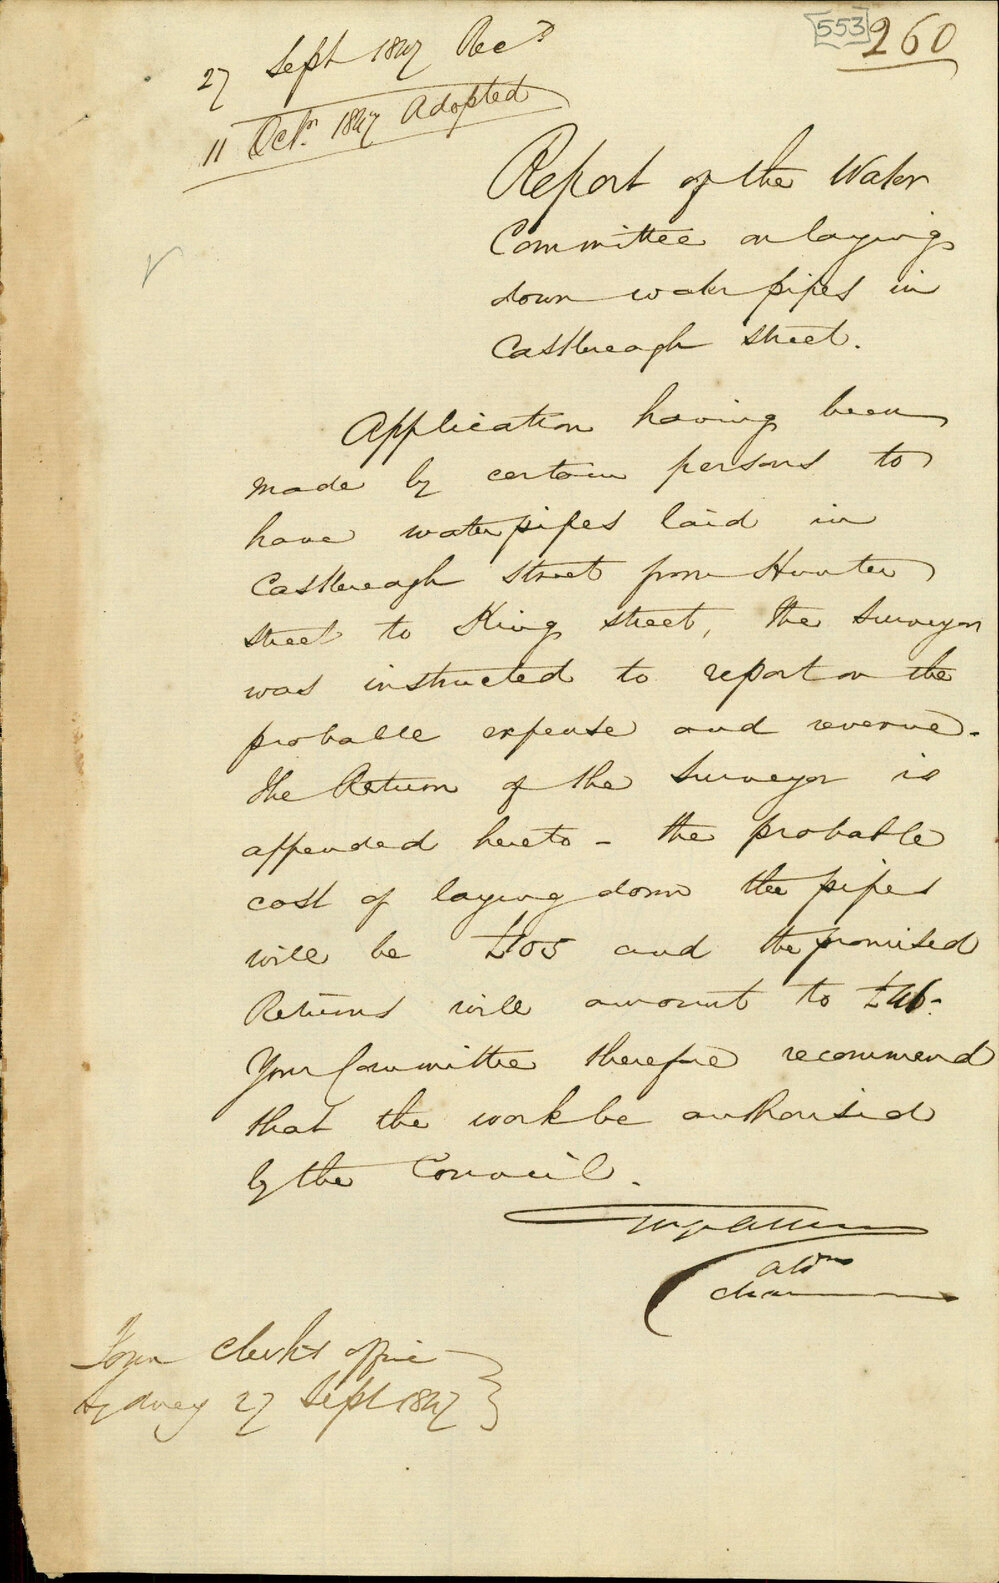 553 260
27 Sept 1847 Recd
11 Octr. 1847 Adopted
Report of the Water
Committee on laying
down water pipes in
Castlereagh Street.
Application having been
made by certain persons to
have water pipes laid in
Castlereagh Street from Hunter
street to King street, the Surveyor
was instructed to report on the
probable expense and revenue.
The Return of the Surveyor is
appended hereto - the probable
cost of laying down the pipes
will be £105 and the promised
Returns will amount to £46.
Your Committee therefore recommend
that the work be authorised
by the Council.
Aldn
Chairman
Town Clerk's office
Sydney 27 Sept 1847